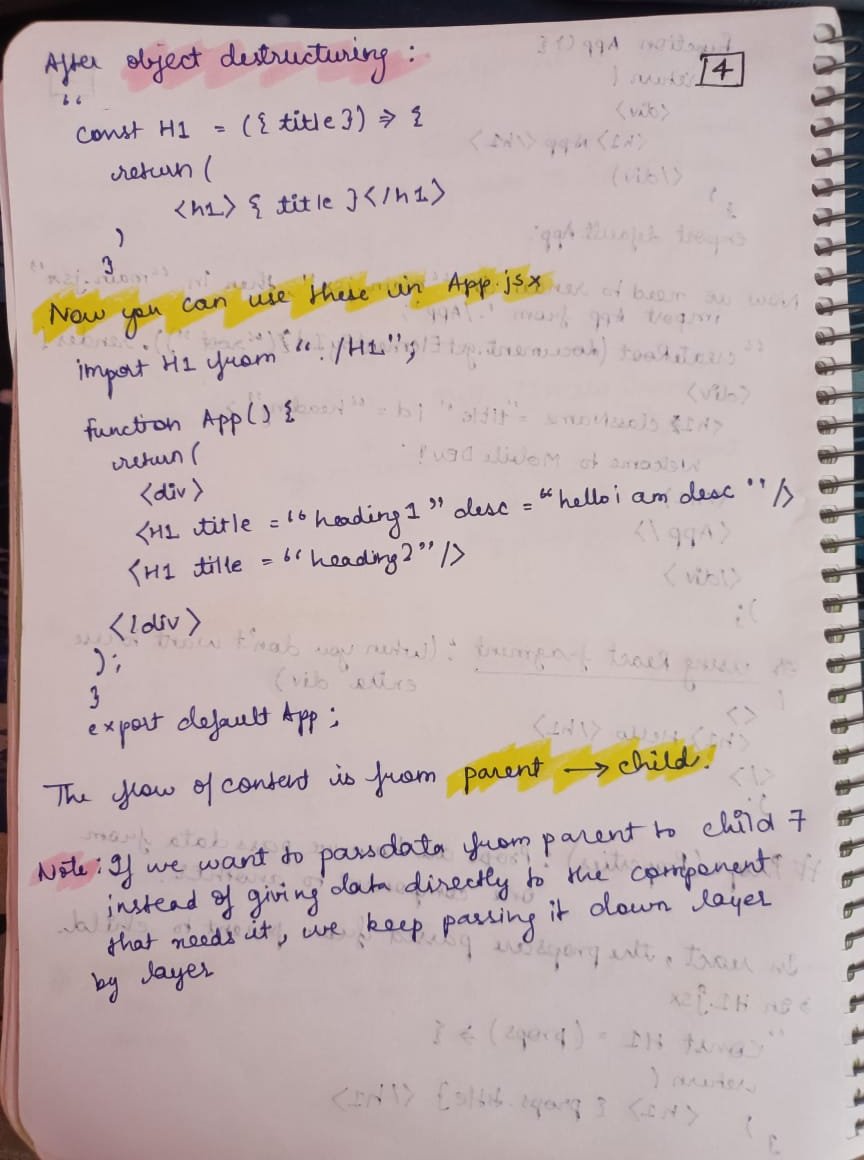 After object destructuring :
4
“
const H1 = ({ title }) => {
return (
<h1> { title } </h1>
)
}
Now you can use these in App.jsx
import H1 from “./H1”;
function App() {
return (
<div>
<H1 title = “heading 1” desc = “hello i am desc” />
<H1 title = “heading2” />
</div>
);
}
export default App ;
The flow of content is from parent → child.
Note : If we want to pass data from parent to child 7
instead of giving data directly to the component
that needs it, we keep passing it down layer
by layer